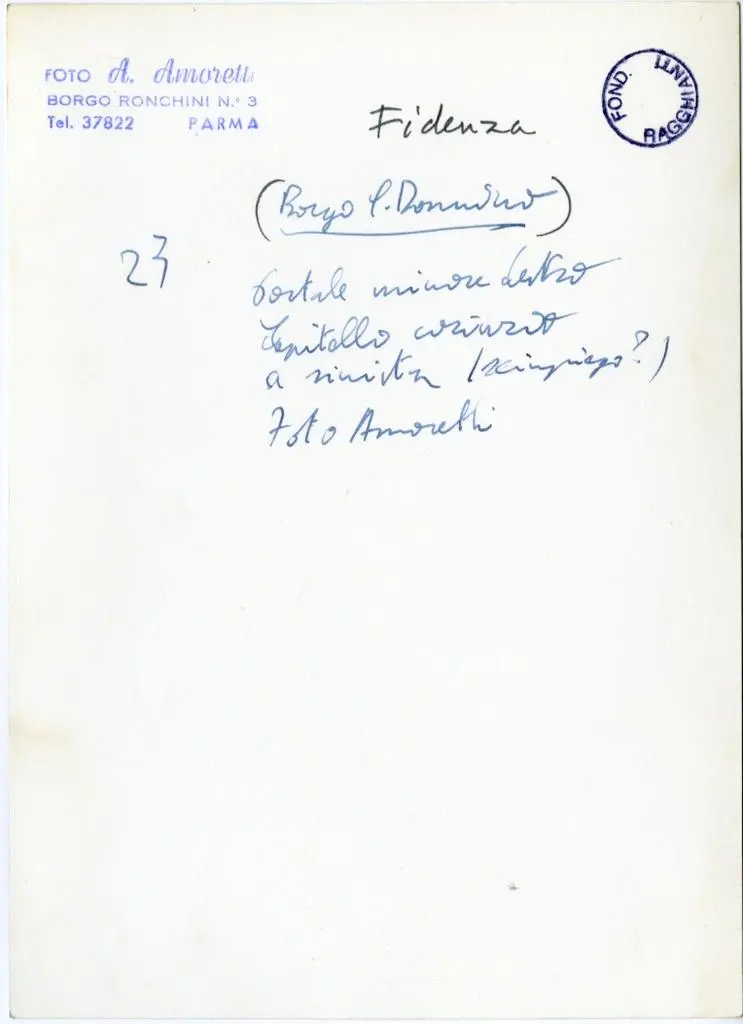 FOTO A. Amoretti
BORGO RONCHINI N.° 3
Tel. 37822 PARMA
FOND. RAGGHIANTI
Fidenza
(Borgo S. Donnino)
23
Portale minore destro
Capitello corinzio
a sinistra (reimpiego?)
Foto Amoretti